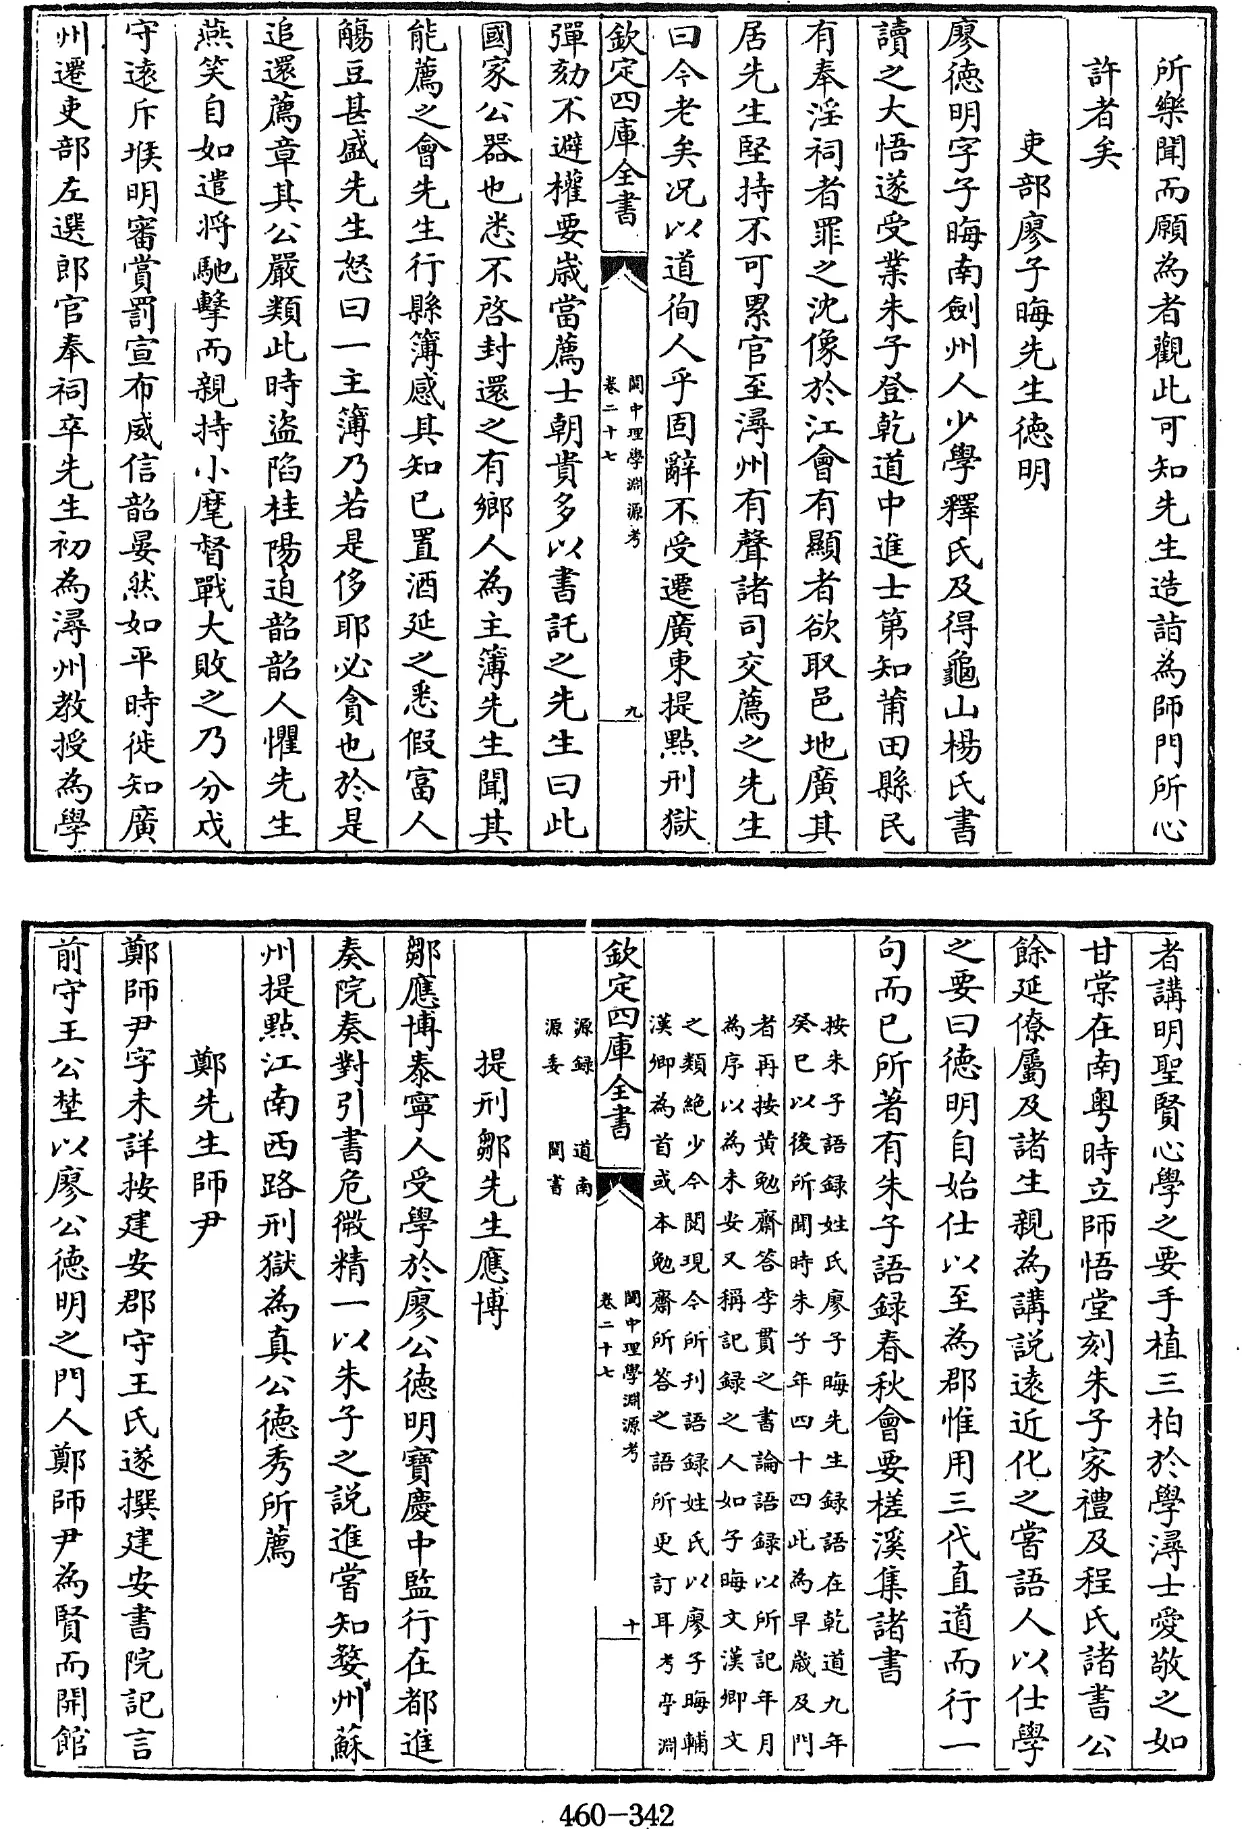 所樂聞而願為者觀此可知先生造詣為師門所心
許者矣
吏部廖子晦先生德明
廖德明字子晦南劍州人少學釋氏及得龜山楊氏書
讀之大悟遂受業朱子登乾道中進士第知莆田縣民
有奉淫祠者罪之沈像於江會有顯者欲取邑地廣其
居先生堅持不可累官至潯州有聲諸司交薦之先生
曰今老矣况以道徇人乎固辭不受遷廣東提點刑獄
欽定四庫全書
閩中理學淵源考
卷二十七
九
彈劾不避權要歲當薦士朝貴多以書託之先生曰此
國家公器也悉不啓封還之有鄉人為主簿先生聞其
能薦之會先生行縣簿感其知已置酒延之悉假富人
觴豆甚盛先生怒曰一主簿乃若是侈耶必貪也於是
追還薦章其公嚴類此時盜陷桂陽迫韶韶人懼先生
燕笑自如遣將馳擊而親持小麾督戰大敗之乃分戍
守遠斥堠明審賞罰宣布威信韶晏然如平時徙知廣
州遷吏部左選郎官奉祠卒先生初為潯州教授為學
者講明聖賢心學之要手植三柏於學潯士愛敬之如
甘棠在南粵時立師悟堂刻朱子家禮及程氏諸書公
餘延僚屬及諸生親為講說遠近化之嘗語人以仕學
之要曰德明自始仕以至為郡惟用三代直道而行一
句而已所著有朱子語録春秋會要槎溪集諸書
按朱子語録姓氏廖子晦先生録語在乾道九年
癸巳以後所聞時朱子年四十四此為早歲及門
者再按黃勉齋答李貫之書論語録以所記年月
為序以為未安又稱記録之人如子晦文漢卿文
之類絶少今閱現今所刋語録姓氏以廖子晦輔
漢卿為首或本勉齋所答之語所更訂耳考亭淵
欽定四庫全書
閩中理學淵源考
卷二十七
十
源録 道南
源委 閩書
提刑鄒先生應博
鄒應博泰寧人受學於廖公德明寶慶中監行在都進
奏院奏對引書危微精一以朱子之說進嘗知婺州蘇
州提點江南西路刑獄為真公德秀所薦
鄭先生師尹
鄭師尹字未詳按建安郡守王氏遂撰建安書院記言
前守王公埜以廖公德明之門人鄭師尹為賢而開館
460-342